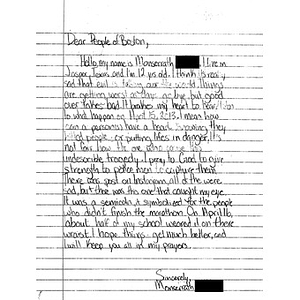 Dear People of Boston,
Hello, my name is Monserrath I live in
Jasper, Texas and I'm 12 yrs. old. I think its really
sad that evil is taking over the world. Things
are getting worst as days go bye, but good
over takes bad. It brakes my heart to hear/listen
to what happen on April 15, 2013. I mean how
can a person(s) have a heart knowing they
killed people, or putting lifes in danger. It's
not fair how the one who cause this
indescrible tragedy. I pray to God to give
strength to police men to capture them.
There was post on Instagram, all of the were
sad, but their was this one that caught my eye.
It was a semicolon it symbolized for the people
who didn't finish the marathon. On April 16,
about half of my school weared it on there
wrist. I hope things get much better, and
I will keep you all in my prayers.
Sincerely,
Monserrath